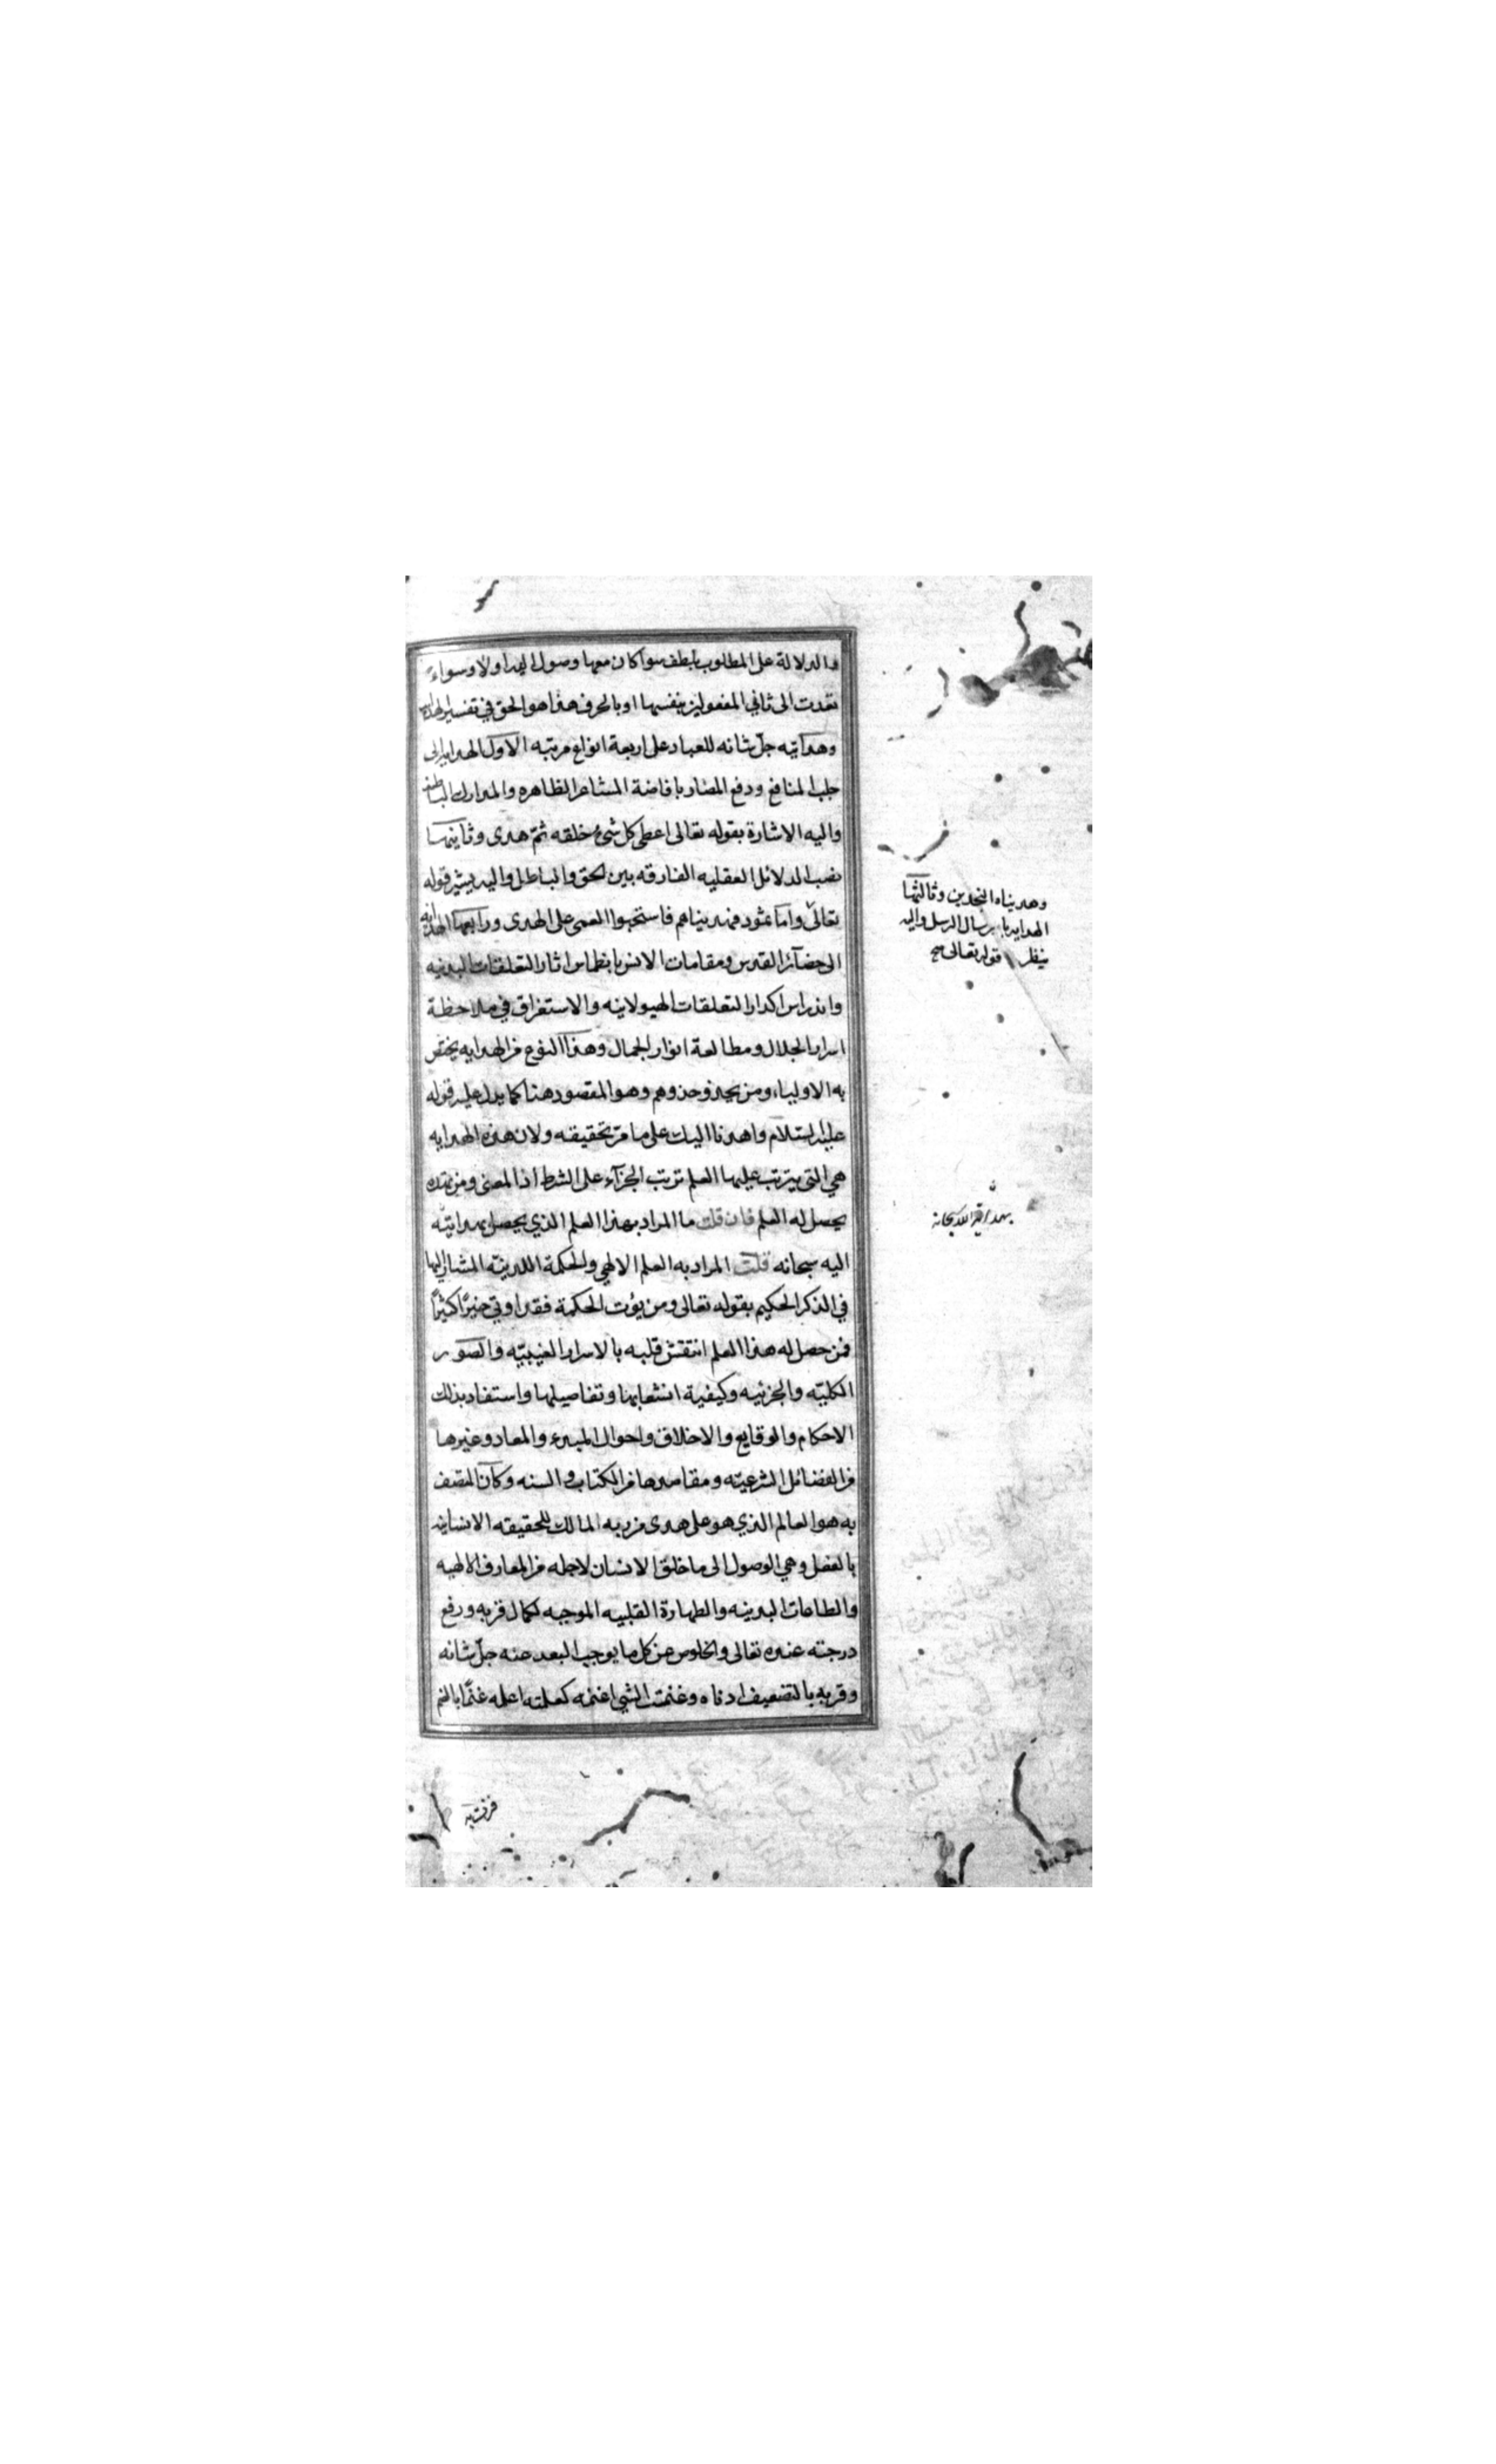 الدلالة على المطلوب بلطف سوآ كان معها وصول اليه اولا وسواء
تعدت الى ثاني المفعولين بنفسها او بالحرف هذا هو الحق في تفسير الهداية
وهدآيته جلّ شانه للعباد على اربعة انواع مرتبه الاوّل الهدايه الى
جلب المنافع ودفع المضار بافاضة المشاعر الظاهره والمدارك الباطنه
واليه الاشارة بقوله تعالى اعطى كل شيء خلقه ثمّ هدى وثانيتها
نصب الدلائل العقليه الفارقه بين الحق والباطل واليه يشير قوله
تعالى واما ثمود فهديناهم فاستحبوا العمى على الهدى ورابعها الهدايه
الى حضآئر القدس ومقامات الانس بانطماس اثار التعلقات البدنيه
واندراس اكدار التعلقات الهيولانيه والاستغراق في ملاحظة
اسرار الجلال ومطالعة انوار الجمال وهذا النوع من الهدايه يختص
به الاولياء ومن يحذو حذوهم وهو المقصود هنا كما يدل عليه قوله
عليه السلام واهدنا اليك على ما مرّ تحقيقه ولان هذه الهدايه
هي التي يترتب عليها العلم ترتب الجزآء على الشرط اذ المعنى ومن تهده
يحصل له العلم فان قلت ما المراد بهذا العلم الذي يحصل بهدايته
اليه سبحانه قلت المراد به العلم الالهي والحكمة اللدنيّه المشار اليها
في الذكر الحكيم بقوله تعالى ومن يؤت الحكمة فقد اوتي خيرًا كثيرًا
فمن حصل له هذا العلم انتقش قلبه بالاسرار الغيبيّه والصّور
الكليّه والجزئيه وكيفية انشعابها وتفاصيلها واستفاد بذلك
الاحكام والوقايع والاخلاق واحوال المبدء والمعاد وغيرها
من الفضائل الشرعيّه ومقاصدها من الكتاب والسنه وكان المتصف
به هو العالم الذي هو على هدى من ربه المالك للحقيقه الانسانيه
بالفعل وهي الوصول الى ما خلق الانسان لاجله من المعارف الالهيه
والطاعات البدنيه والطهارة القلبيه الموجبه لكمال قربه ورفع
درجته عنده تعالى والخلوص عن كل ما يوجب البعد عنه جلّ شانه
وقربه بالتضعيف ادناه وغنمت الشي اغنمه كعلمته اعلمه غنمًا بالضم
وهديناه النجدين وثالثها
الهدايه بارسال الرسل واليه
ينظر قوله تعالى صح